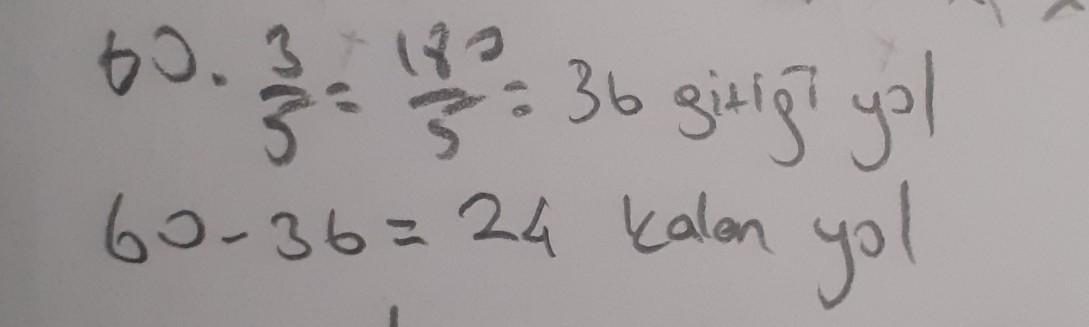 60. 3/5 = 180/5 = 36 gitiği yol
60-36 = 24 kalan yol